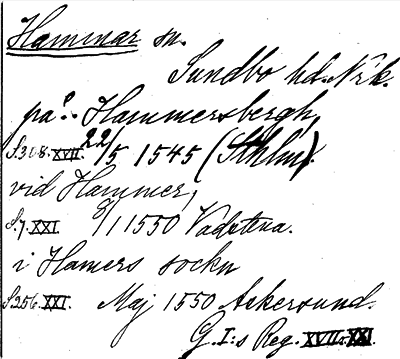 Hammar sn.
Sundbo hd. Nrk.
på? Hammersbergh,
S.308. XVII. 22/5 1545 (Sthlm).
vid Hammer,
S.7. XXI. 8/1 1550 Vadstena.
i Hamers sockn
S256. XXI. Maj 1550 Askersund.
G. I:s Reg. XVII o. XXI.